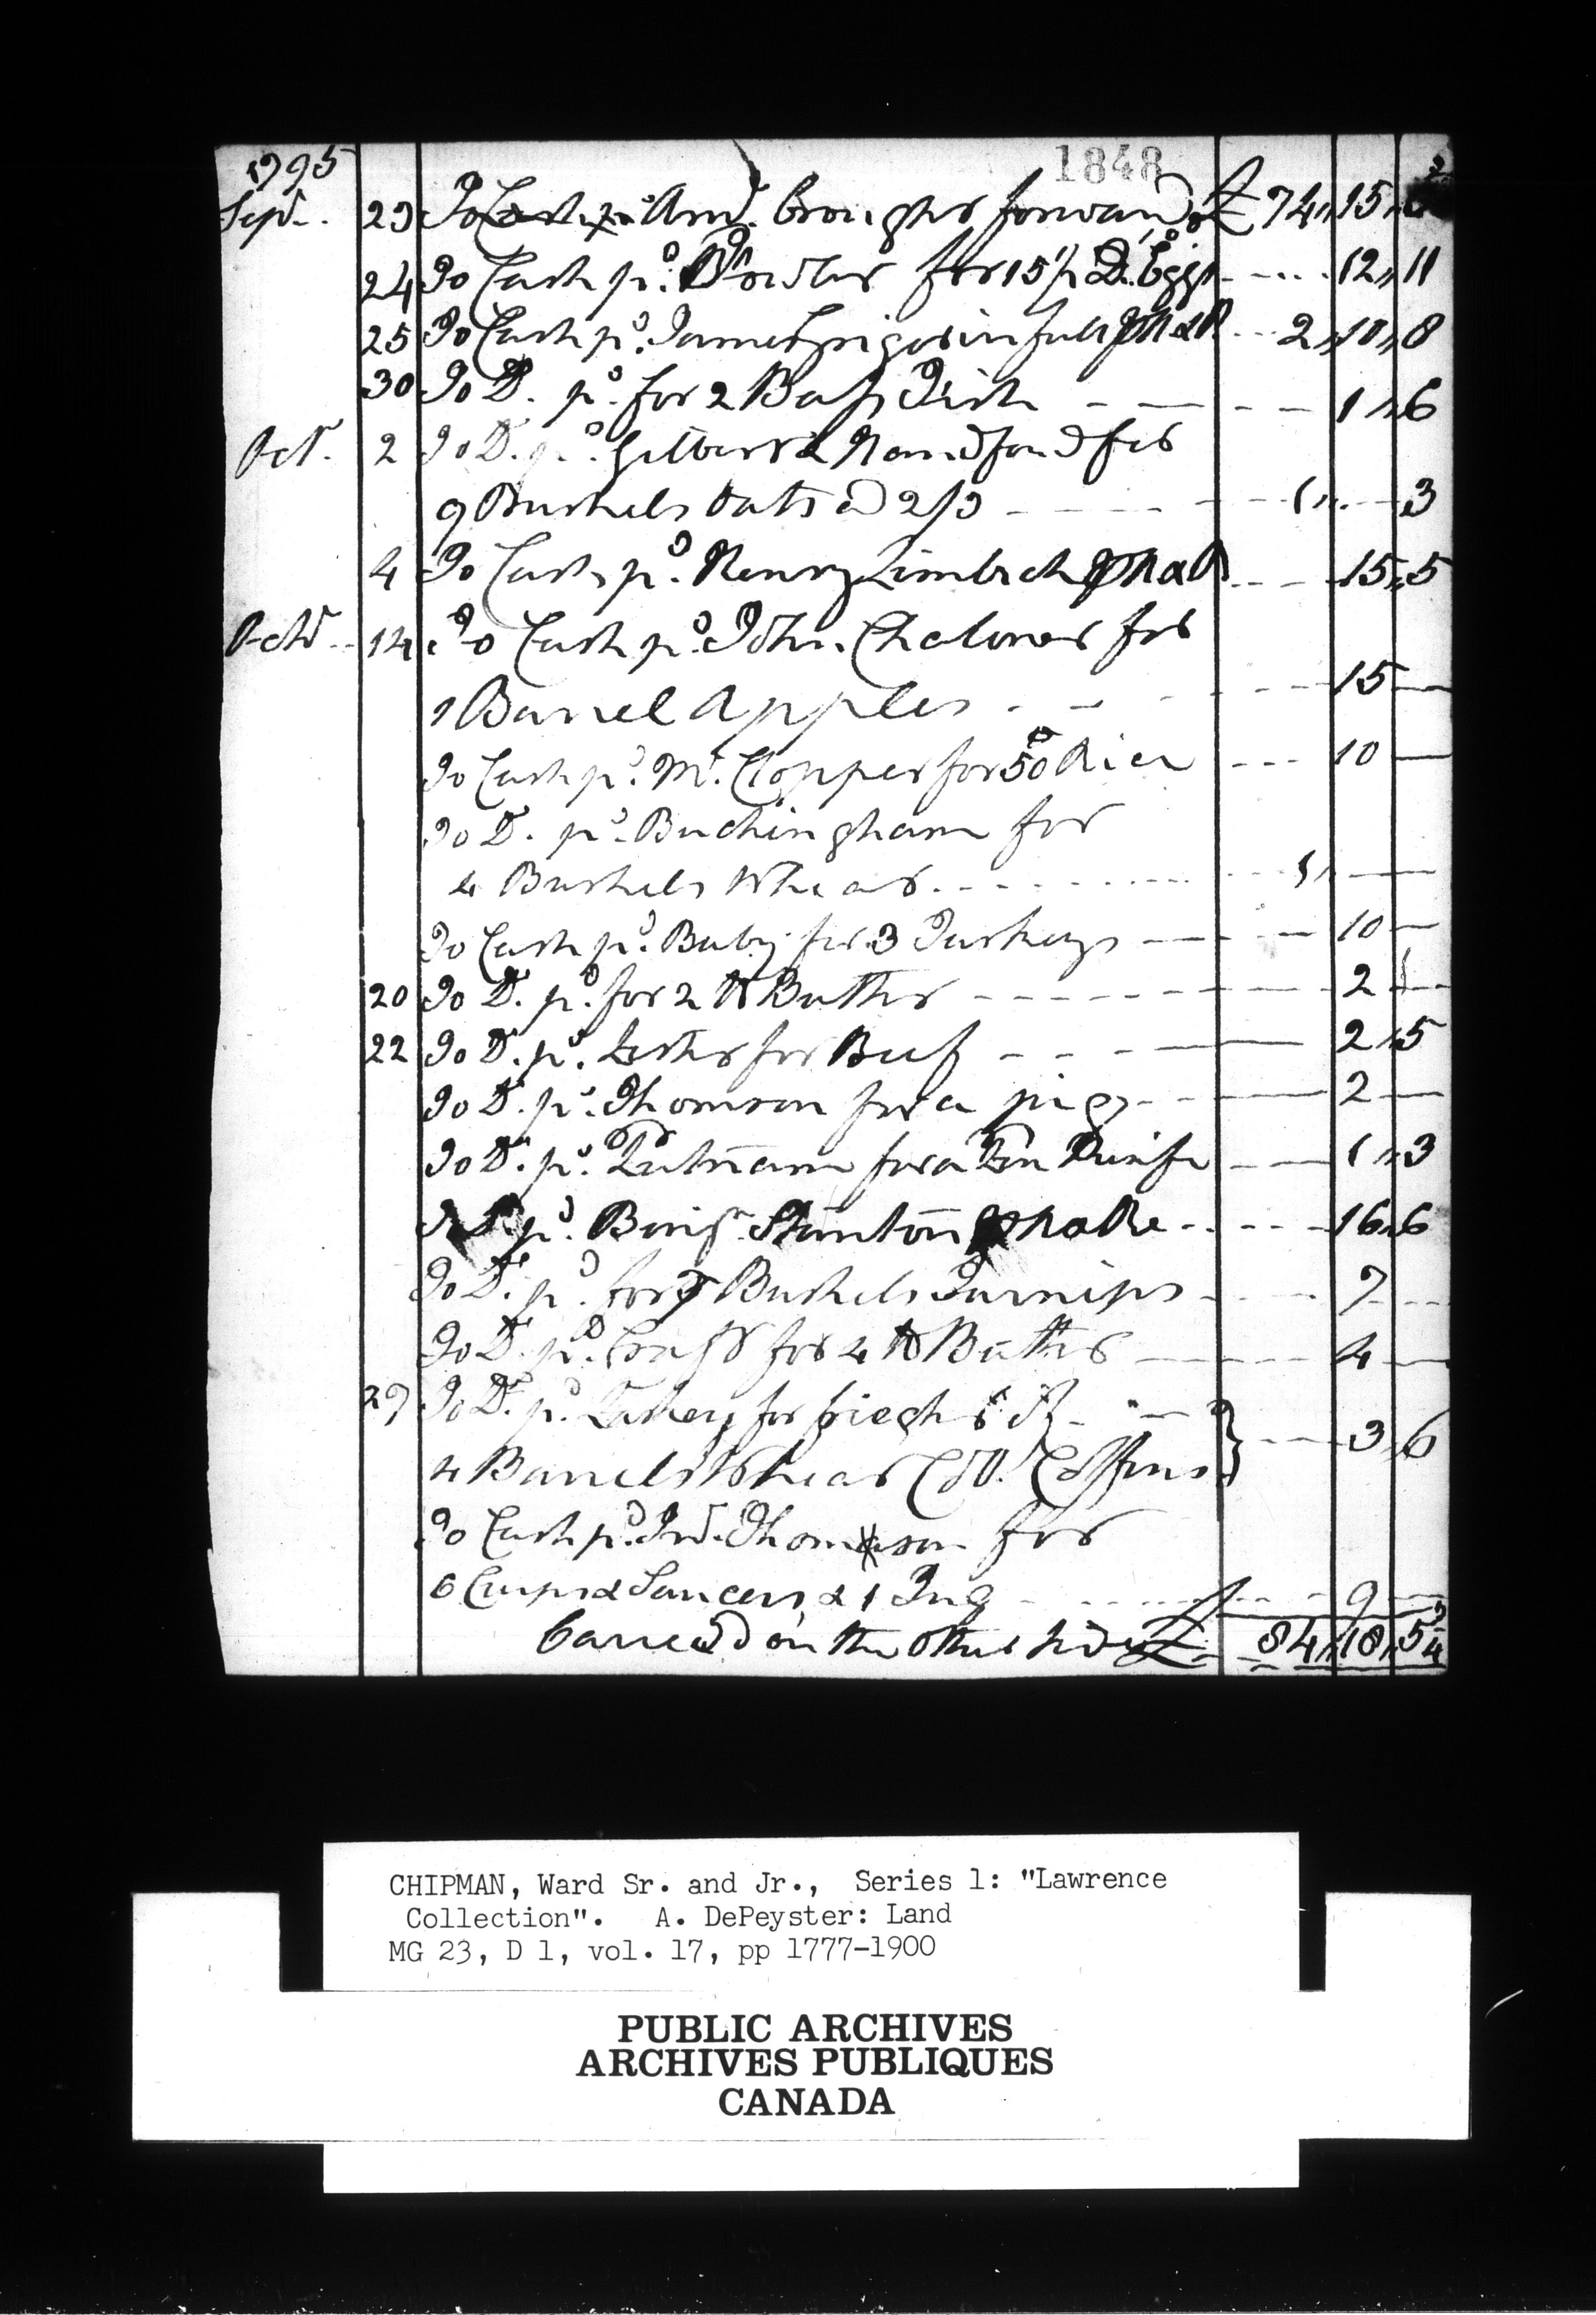 1848
1795
Sepr. 23 To Amt. brought forward £ 74 " 15 "
24 To Cash pd. for 15 Dn. Eggs 12 " 11
25 To Cash pd. James in full 2 " 10 " 8
30 To Do. pd. for 2 Bass Fish 1 " 6
Oct. 2 To Do. pd. Gilbert & Handford for
9 Bushels Oats @ 2/3 1 " 3
4 To Cash pd. Henry 15 " 5
Octr. 14 To Cash pd. John Chaloner for
1 Barrel Apples 15 —
To Cash pd. Mr. Clopper for 50 lb Rice 10 —
To Do. pd. Buckingham for
4 Bushels Wheat 1 " —
To Cash pd. for 3 Turkeys 10 —
20 To Do. pd. for 2 lb Butter 2 —
22 To Do. pd. Lester for Beef 2 " 5
To Do. pd. Thomson for a pig 2 —
To Do. pd. Putnam for a Knife 1 " 3
To Do. pd. Benjn. Stanton 16 " 6
To Do. pd. for 7 Bushels Turnips 7
To Do. pd. for 4 lb Butter 4 —
27 To Do. pd. for freight of
4 Barrels Wheat Col. Coffins } 3 " 6
To Cash pd. Thomson for
6 Cups & Saucers & 1 Jug 9 —
Carried on the other side £ 84 " 18 " 5 3/4
CHIPMAN, Ward Sr. and Jr., Series 1: "Lawrence
Collection". A. DePeyster: Land
MG 23, D 1, vol. 17, pp 1777-1900
PUBLIC ARCHIVES
ARCHIVES PUBLIQUES
CANADA